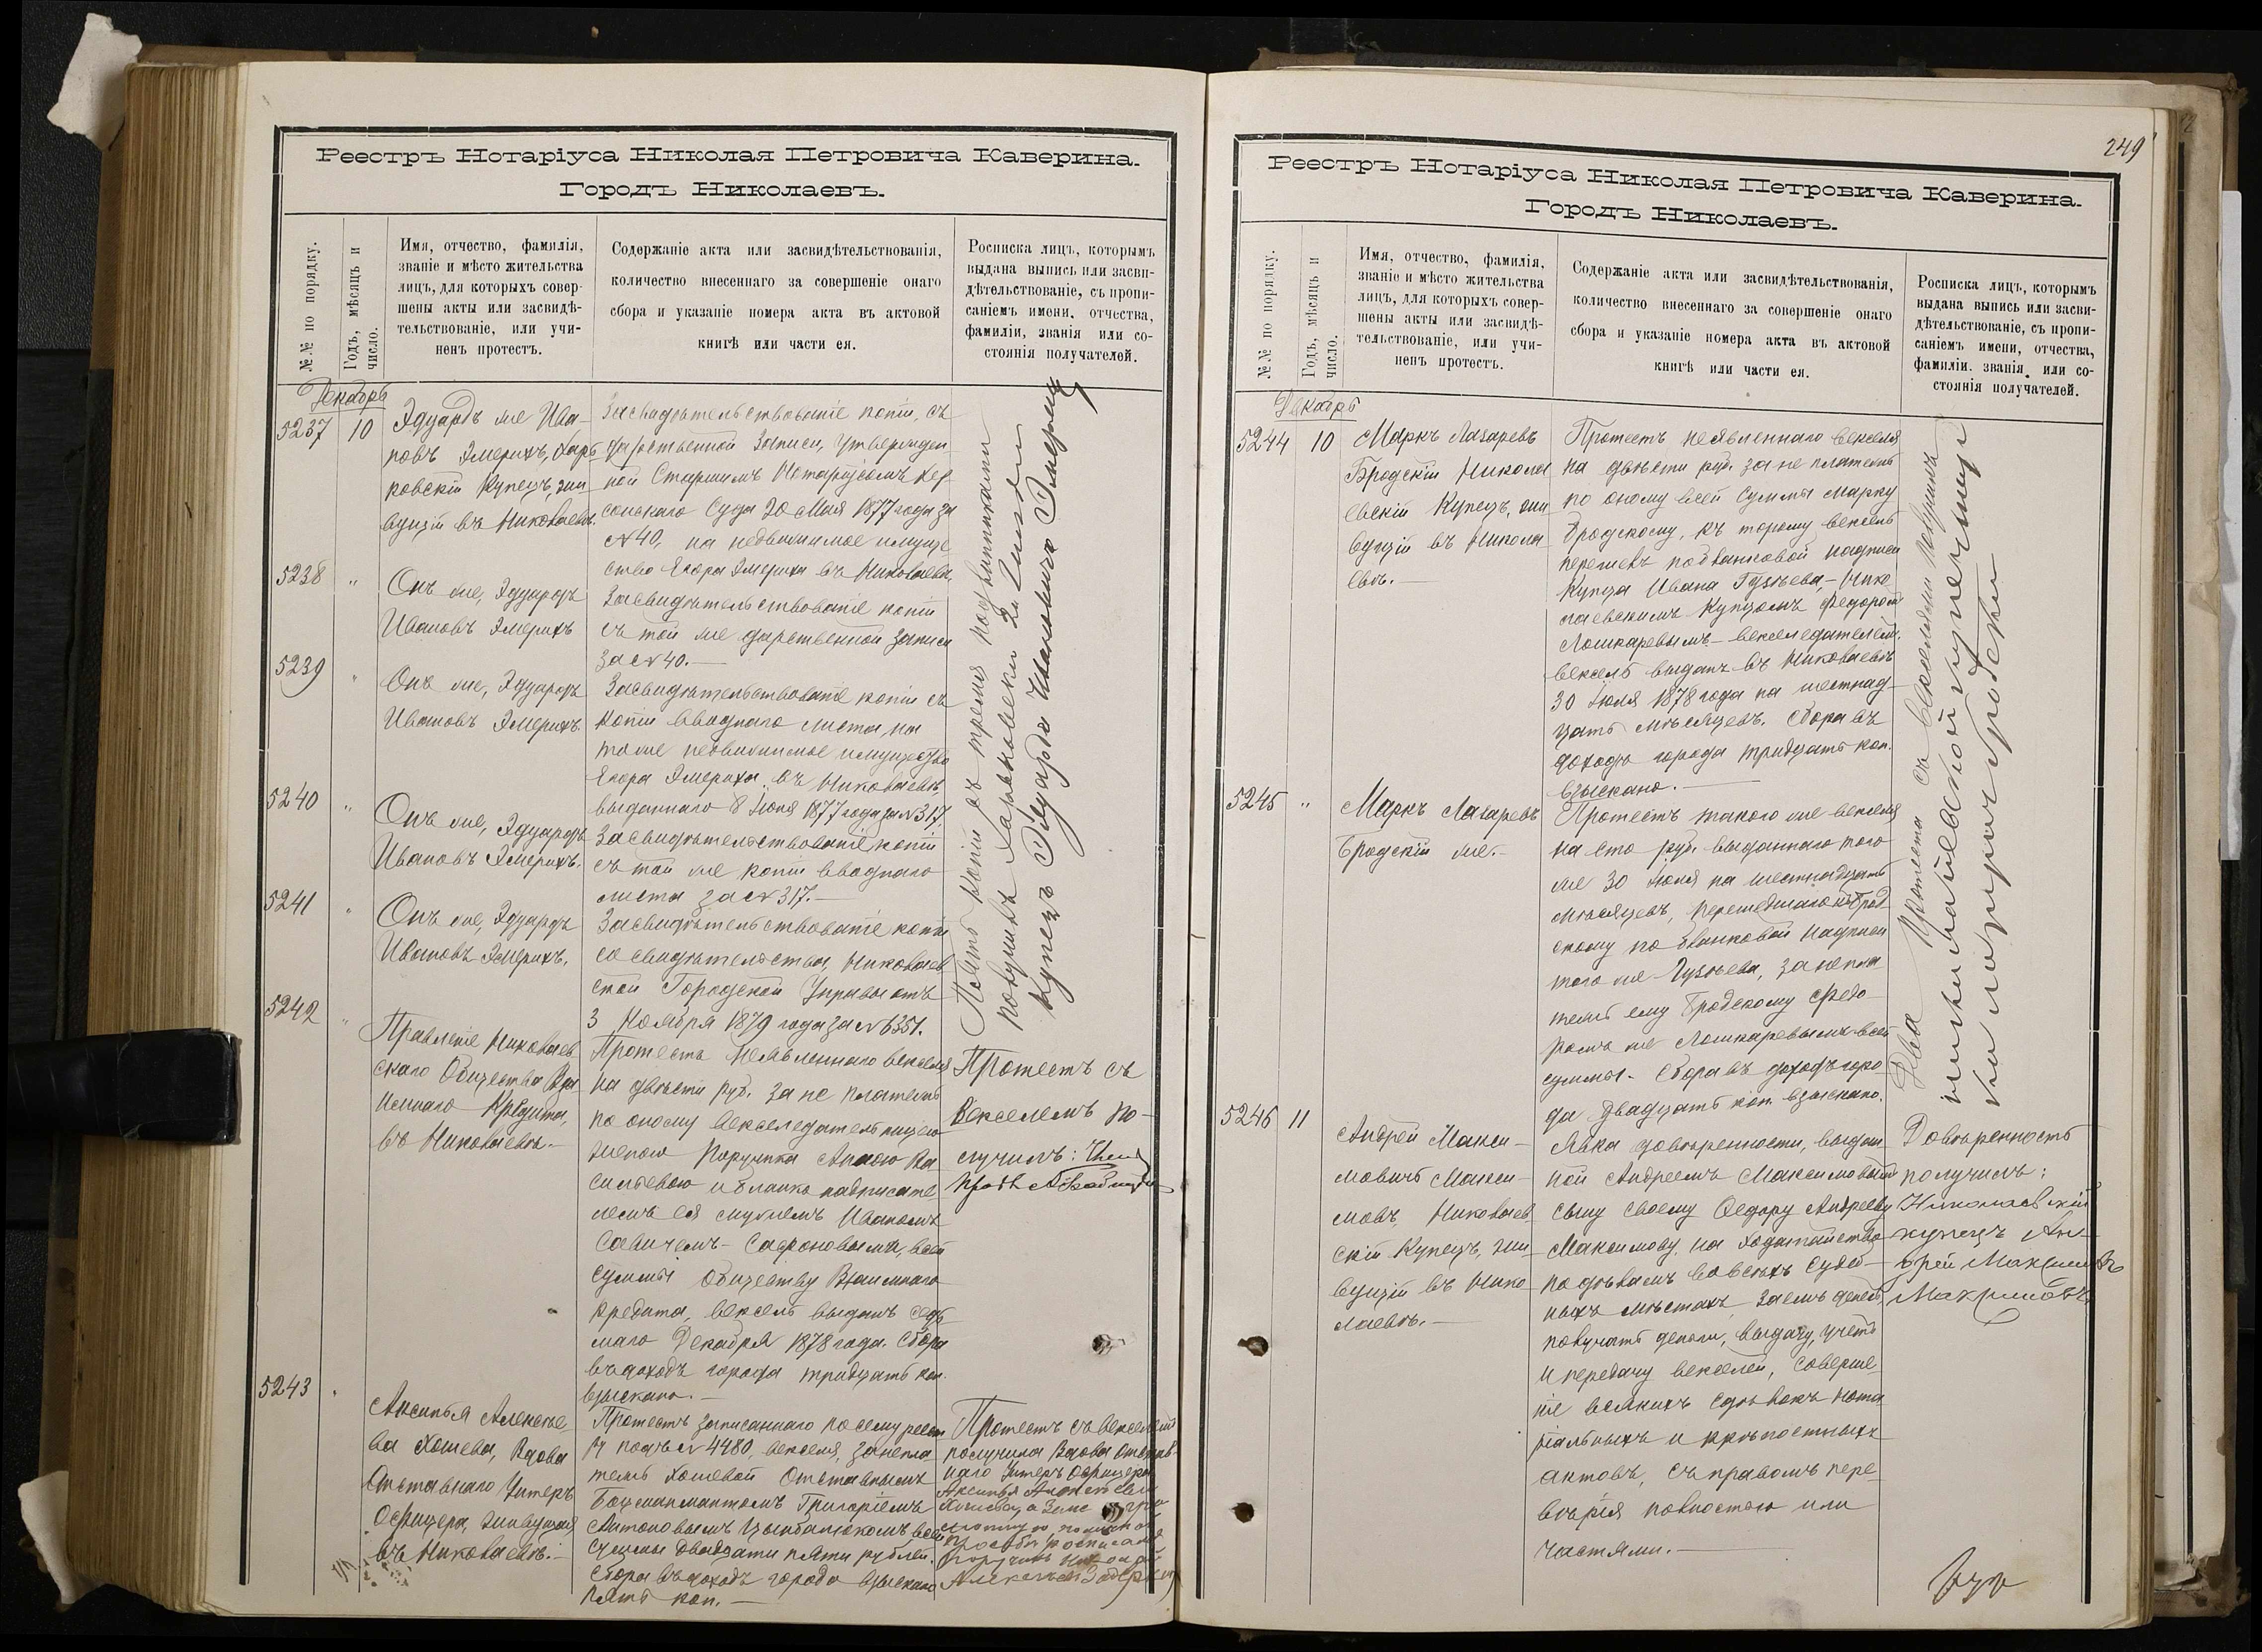 Реестръ Нотаріуса Николая Петровича Каверина.
Городъ Николаевъ.
№№ по порядку.
Годъ, мѣсяцъ и
число.
Имя, отчество, фамилія,
званіе и мѣсто жительства
лицъ, для которыхъ совер-
шены акты или засвидѣ-
тельствованіе, или учи-
ненъ протестъ.
Содержаніе акта или засвидѣтельствованія,
количество внесеннаго за совершеніе онаго
сбора и указаніе номера акта въ актовой
книгѣ или части ея.
Росписка лицъ, которымъ
выдана выпись или засви-
дѣтельствованіе, съ пропи-
саніемъ имени, отчества,
фамиліи, званія или со-
стоянія получателей.
Декабрь
5237
10
Эдуардъ же Ива-
новъ Эмерихъ, Харь-
ковскій Купецъ, жи-
вущій въ Николаевѣ.
Засвидѣтельствованіе копіи, съ
дарственной записи, утвержден
ной Старшимъ Нотаріусомъ Хер
сонскаго Суда 20 Мая 1877 года за
№ 40, на недвижимое имуще
ство Егора Эмериха въ Николаевѣ.
5238
"
Онъ же, Эдуардъ
Ивановъ Эмерихъ
Засвидѣтельствованіе копіи
съ той же дарственной записи
за № 40.—
5239
"
Онъ же, Эдуардъ
Ивановъ Эмерихъ.
Засвидѣтельствованіе копіи съ
копіи вводнаго листа, на
тоже недвижимое имущество
Егора Эмериха въ Николаевѣ,
выданнаго 8 Іюня 1877 года за № 317.
5240
"
Онъ же, Эдуардъ
Ивановъ Эмерихъ.
Засвидѣтельствованіе копіи
съ той же копіи вводнаго
листа за № 317.—
5241
"
Онъ же, Эдуардъ
Ивановъ Эмерихъ.
Засвидѣтельствованіе копіи
со свидѣтельства, Николаев
ской Городской Управы отъ
3 Ноября 1879 года за № 6351.
Пять копій съ тремя подлинниками
получилъ Харьковскій 2й Гильдіи
Купецъ Эдуардъ Ивановичъ Эмерихъ
5242
"
Правленіе Николаев
скаго Общества Вза
имнаго Кредита,
въ Николаевѣ.—
Протестъ неявленнаго векселя
на двѣсти руб. за не платежъ
по оному векселедательницею
женою Поручика Анною Ва
сильевою и бланконадписате
лемъ ея мужемъ Иваномъ
Савичемъ Сафоновымъ, всей
суммы Обществу Взаимнаго
Кредита, вексель выданъ седь
маго Декабря 1878 года. Сбора
въ доходъ города тридцать коп.
взыскано.—
Протестъ съ
векселемъ по-
лучилъ: Членъ
5243
"
Аксинья Алексѣе
ва Хошева, Вдова
Отставнаго Унтеръ
Офицера, живущая
въ Николаевѣ.—
Протестъ записаннаго по сему реест
ру подъ № 4480, векселя, за непла
тежъ Хошевой Отставнымъ
Боцманматомъ Григоріемъ
Антоновымъ Цымбалюкомъ всей
суммы двадцати пяти рублей.
Сбора въ доходъ города взыскано
пять коп.—
Протестъ съ векселемъ
получила Вдова отстав-
наго Унтеръ Офицера
Аксинья Алексѣева
Хошева, а за не
249
Реестръ Нотаріуса Николая Петровича Каверина.
Городъ Николаевъ.
№№ по порядку.
Годъ, мѣсяцъ и
число.
Имя, отчество, фамилія,
званіе и мѣсто жительства
лицъ, для которыхъ совер-
шены акты или засвидѣ-
тельствованіе, или учи-
ненъ протестъ.
Содержаніе акта или засвидѣтельствованія,
количество внесеннаго за совершеніе онаго
сбора и указаніе номера акта въ актовой
книгѣ или части ея.
Росписка лицъ, которымъ
выдана выпись или засви-
дѣтельствованіе, съ пропи-
саніемъ имени, отчества,
фамиліи, званія или со-
стоянія получателей.
Декабрь
5244
10
Маркъ Лазаревъ
Бродскій Никола
евскій Купецъ, жи
вущій въ Никола
евѣ.—
Протестъ неявленнаго векселя
на двѣсти руб. за не платежъ
по оному всей суммы Марку
Бродскому, къ торому вексель
перешелъ по бланковой надписи
Купца Ивана Гузѣева,—Нико
лаевскимъ Купцомъ Федоромъ
Лошкаревымъ—векселедателемъ.
вексель выданъ въ Николаевѣ
30 Іюля 1878 года на шестнад-
цать мѣсяцевъ. Сбора въ
доходъ города тридцать коп.
взыскано.—
5245
"
Маркъ Лазаревъ
Бродскій же.—
Протестъ такого же векселя
на сто руб. выданнаго того
же 30 Іюля на шестнадцать
мѣсяцевъ, перешедшаго къ Брод
скому по бланковой надписи
того же Гузѣева, за непла
тежъ ему Бродскому Федо-
ромъ же Лошкаревымъ всей
суммы. Сбора въ доходъ горо-
да двадцать коп. взыскано.
Два протеста съ векселями получилъ
николаевскій купецъ
5246
11
Андрей Макси-
мовичъ Макси-
мовъ, Николаев
скій Купецъ, жи-
вущій въ Нико
лаевѣ.—
Явка довѣренности, выдан
ной Андреемъ Максимовымъ
сыну своему Ѳедору Андрееву
Максимову, на ходатайство
по дѣламъ во всѣхъ судеб-
ныхъ мѣстахъ, заемъ денегъ,
получать деньги, выдачу, учетъ
и передачу векселей, соверше
ніе всякихъ сдѣлокъ нота
ріальныхъ и крѣпостныхъ
актовъ, съ правомъ пере-
вѣрія полностью или
частями.—
Довѣренность
получилъ:
Николаевскій
купецъ Ан-
дрей Максимовъ
Максимовъ